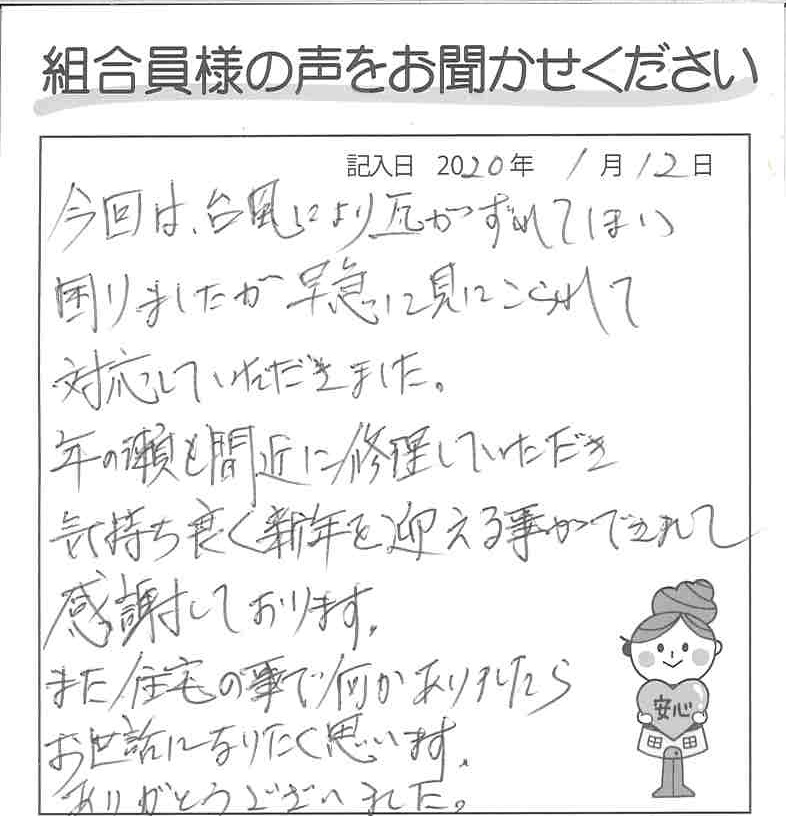 組合員様の声をお聞かせください
記入日 2020年 1月12日
今回は、台風により瓦がずれてしまい
困りましたが早急に見にこられて
対応していただきました。
年の瀬も間近に修理していただき
気持ち良く新年を迎える事ができまして
感謝しております。
また住宅の事で何かありましたら
お世話になりたく思います。
ありがとうございました。
安心